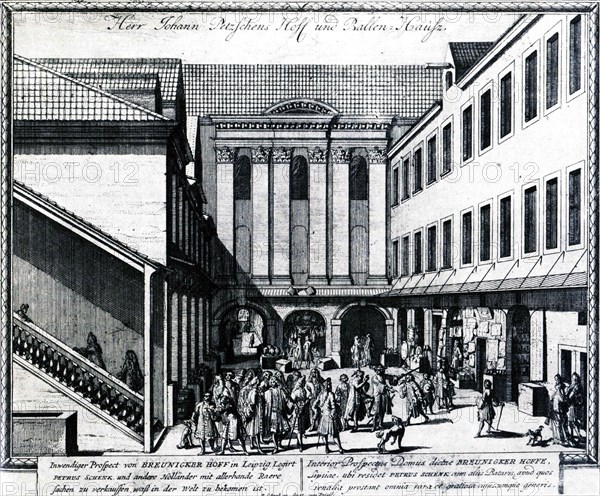 Herr Johann Petzschens Hoff und Ballen-Hausz.
PHOTO 12
PHOTO 12
PHOTO 12
PHOTO 12
Inwendiger Prospect von BREUNICKER HOFF in Leipzig Logirt
PETRUS SCHENK und andere Holländer mit allerhande Raere
sachen zu verkauffen wasz in der Welt zu bekomen ist.
Interior Prospectus Domus dictae BREUNICKER HOFFE,
Lipsiae, ubi residet PETRUS SCHENK cum aliis Batavis, apud quos
venalia prostant omnia rara et cujuscumque generis.